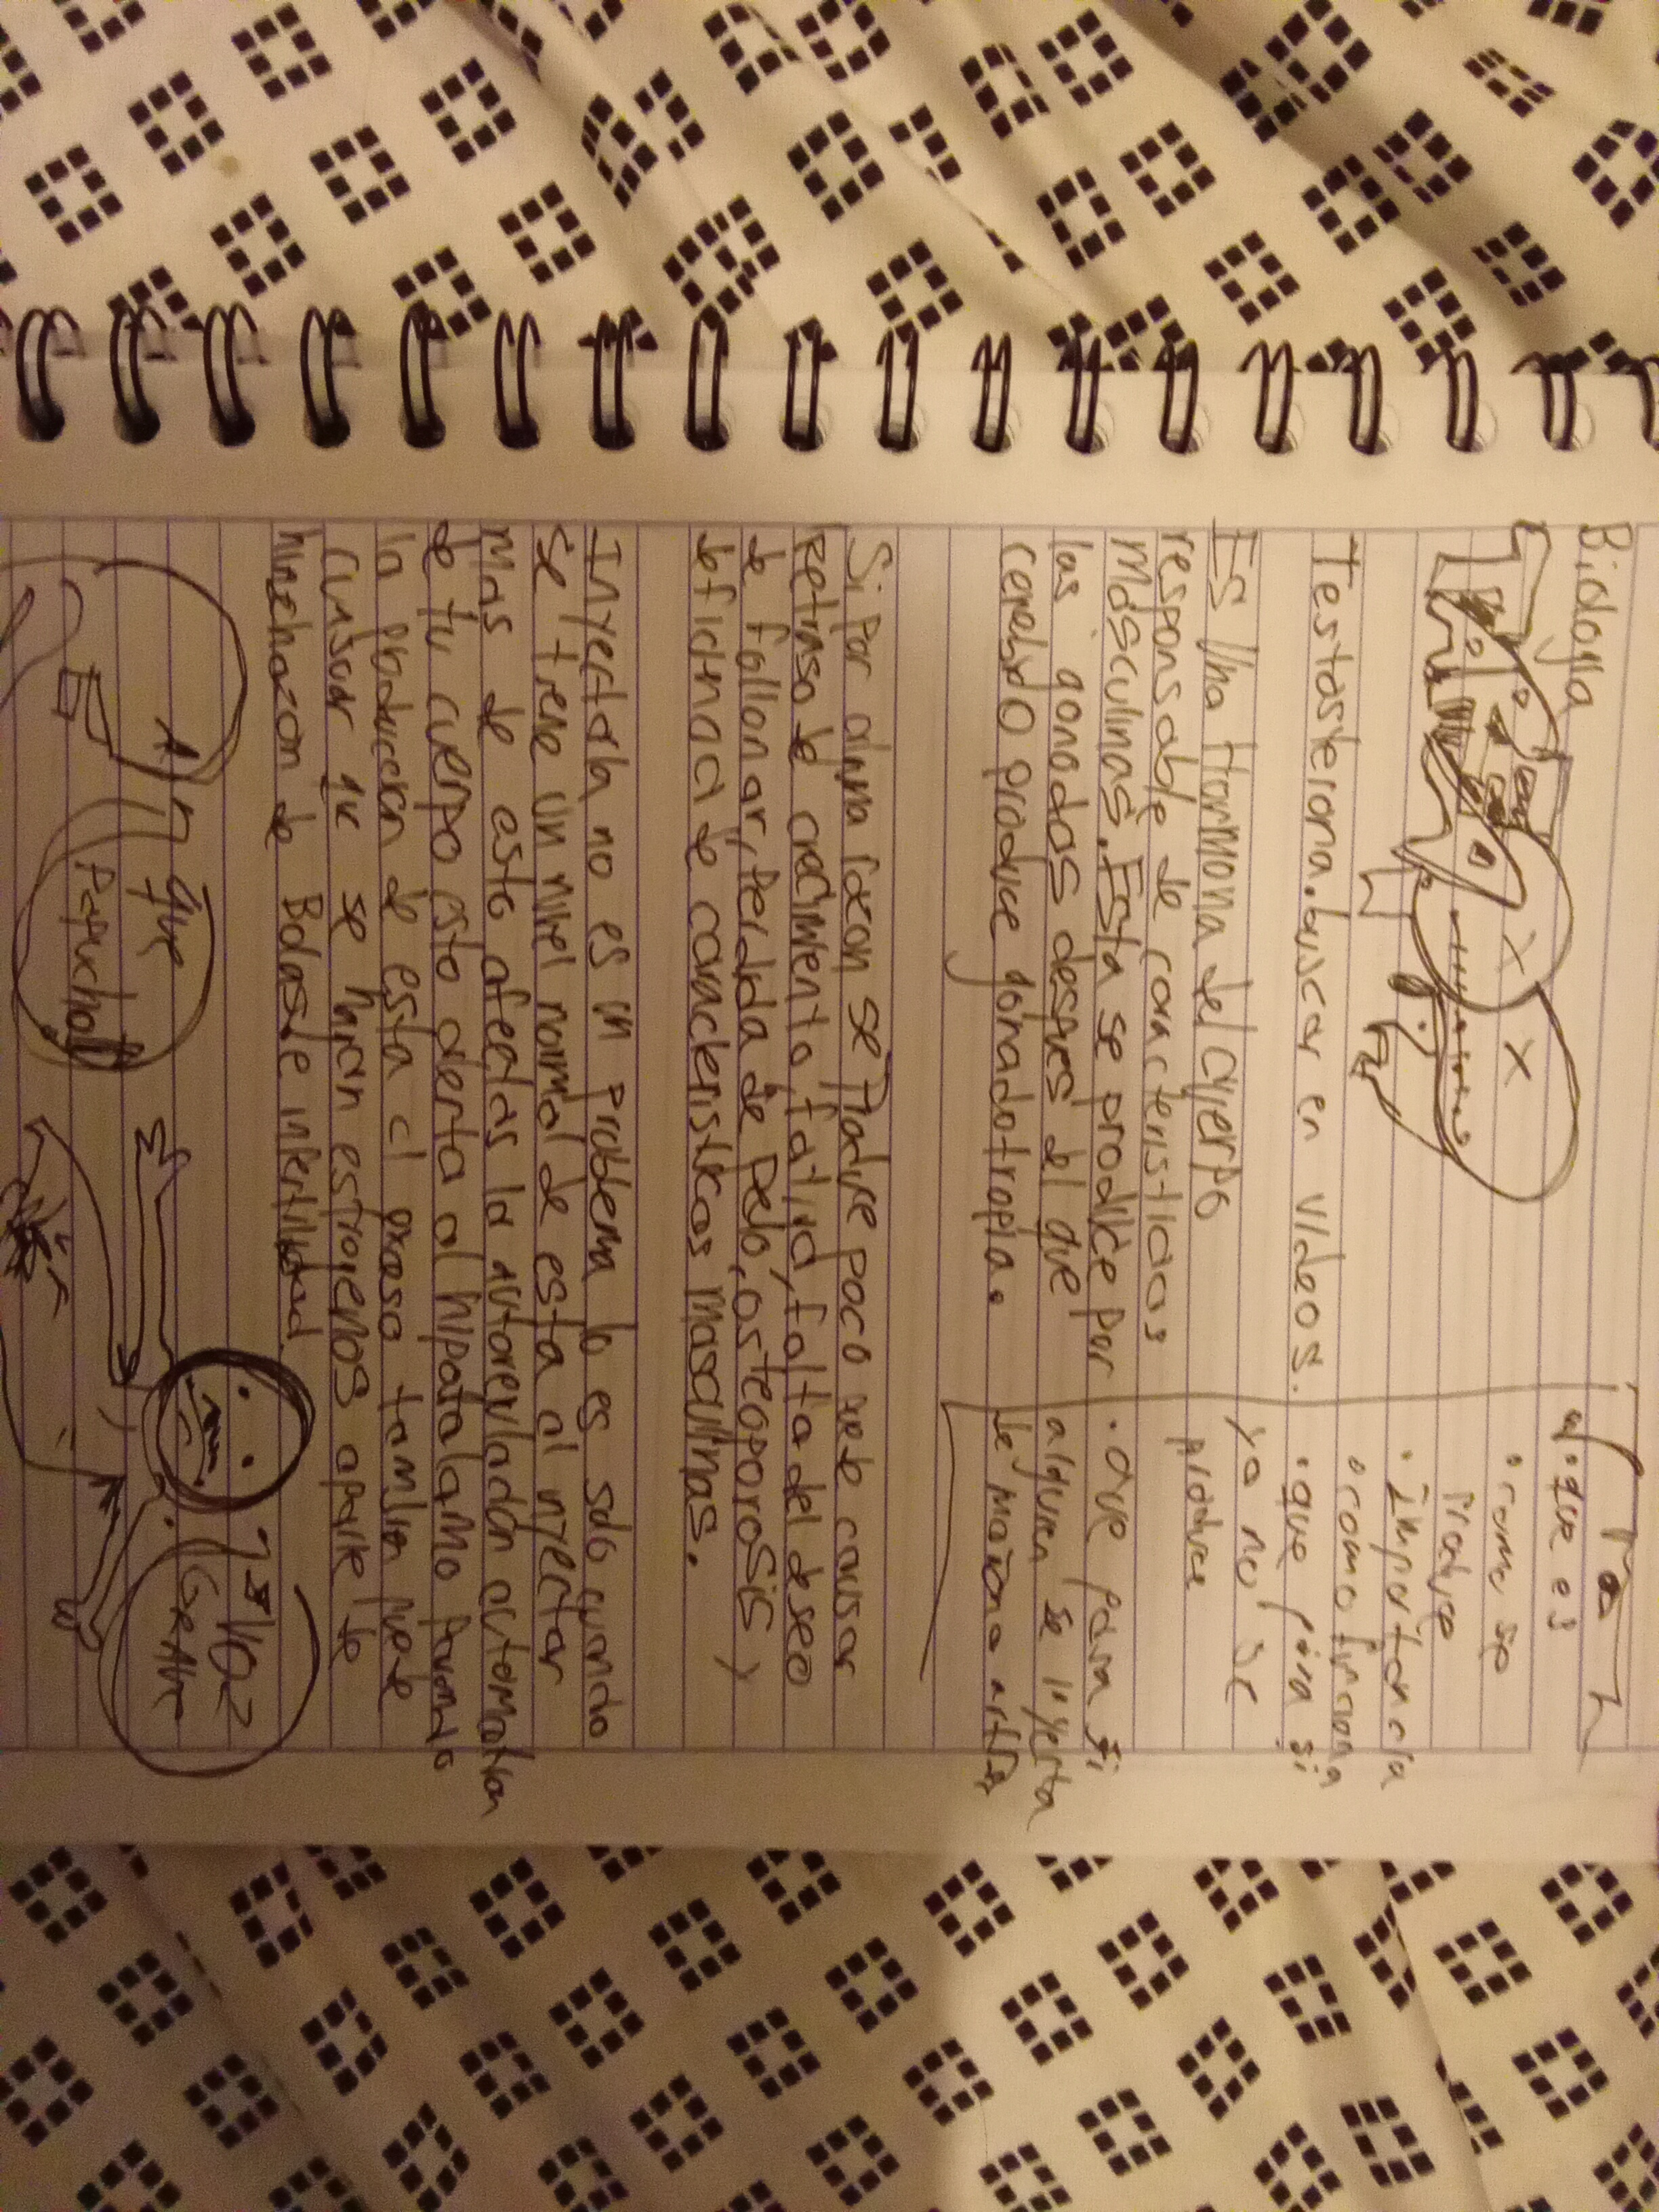 Biología
Testosterona. buscar en videos.
Es una Hormona del cuerpo
responsable de caracteristicas
Masculinas. Esta se produce por
las gonadas despues del que
cerebro produce gonadotropia.
• que es
• como se
produce
• Importancia
• como funciona
• que pasa si
ya no se
produce
• que pasa si
alguien se inyecta
de manera
Si por alguna razon se produce poco puede causar
Retraso de crecimiento, fatiga, falta del deseo
de follongar, Perdida de Pelo, osteoporosis y
deficiencia de caracteristicas masculinas.
Inyectarla no es un problema lo es solo cuando
se tiene un nivel normal de esta al inyectar
Mas de esto afectas la autoregulación
de tu cuerpo esto alerta al hipotalamo
la produccion de esta el exceso tambien puede
causar que se hagan estrogenos aparte de
hinchazon de Bolas e infertilidad
A que